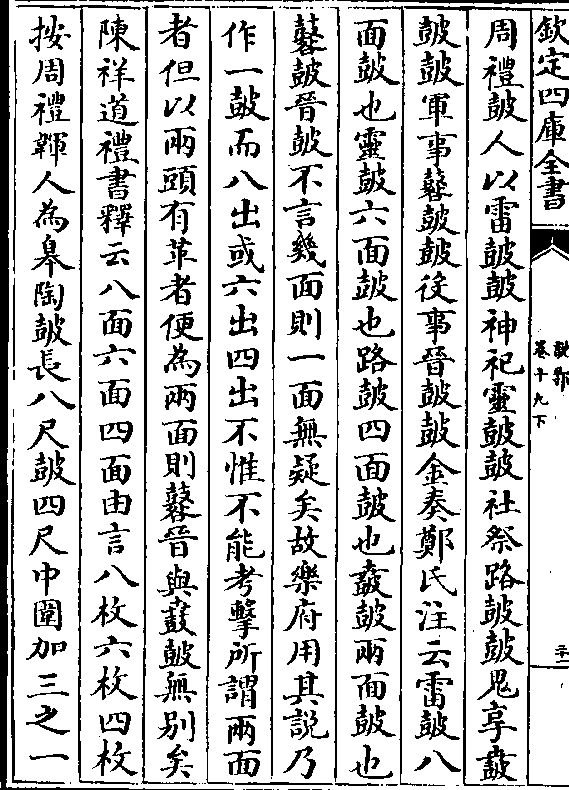 欽定四庫全書
說郛
卷十九下
周禮鼓人以雷鼓鼓神祀靈鼓鼓社祭路鼓鼓鬼享鼖
鼓鼓軍事鼛鼓鼓役事晉鼓鼓金奏鄭氏注云雷鼓八
面鼓也靈鼓六面鼓也路鼓四面鼓也鼖鼓兩面鼓也
鼛鼓晉鼓不言幾面則一面無疑矣故樂府用其說乃
作一鼓而八出或六出四出不惟不能考擊所謂兩面
者但以兩頭有革者便為兩面則鼛晉與鼖鼓無別矣
陳祥道禮書釋云八面六面四面由言八枚六枚四枚
按周禮韗人為皋陶鼓長八尺鼓四尺中圍加三之一